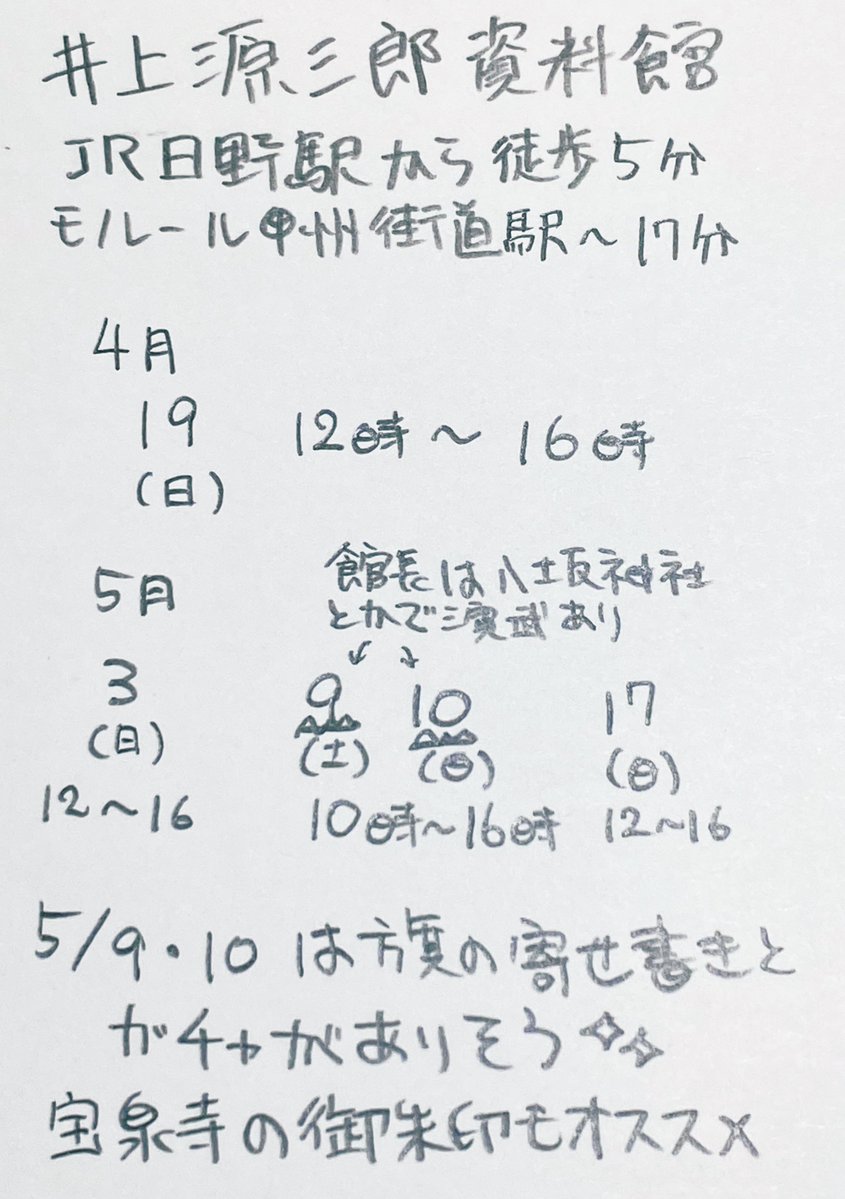 井上源三郎資料館
JR日野駅から徒歩5分
モノレール甲州街道駅〜17分
4月
19 12時〜16時
(日)
5月
館長は八坂神社
とかで演武あり
3 9 10 17
(日) (土) (日) (日)
12〜16 10時〜16時 12〜16
5/9・10は旗の寄せ書きと
ガチャがありそう
宝泉寺の御朱印もオススメ